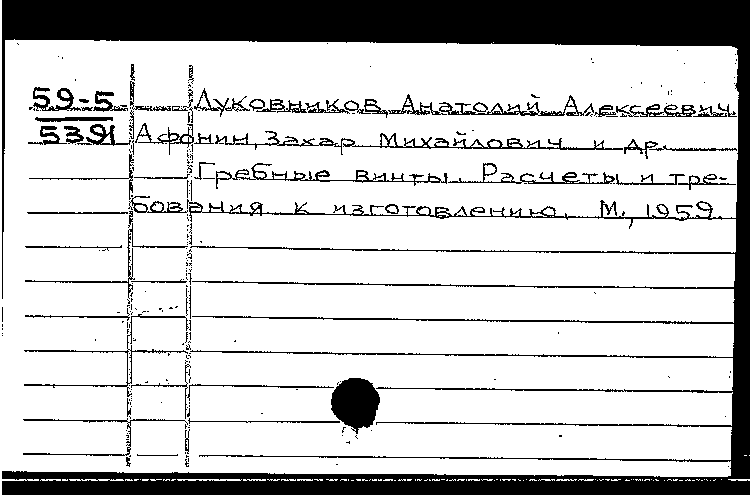 59-5 Луковников, Анатолий Алексеевич.
5391 Афонин, Захар Михайлович и др.
Гребные винты. Расчеты и тре-
бования к изготовлению. М., 1959.